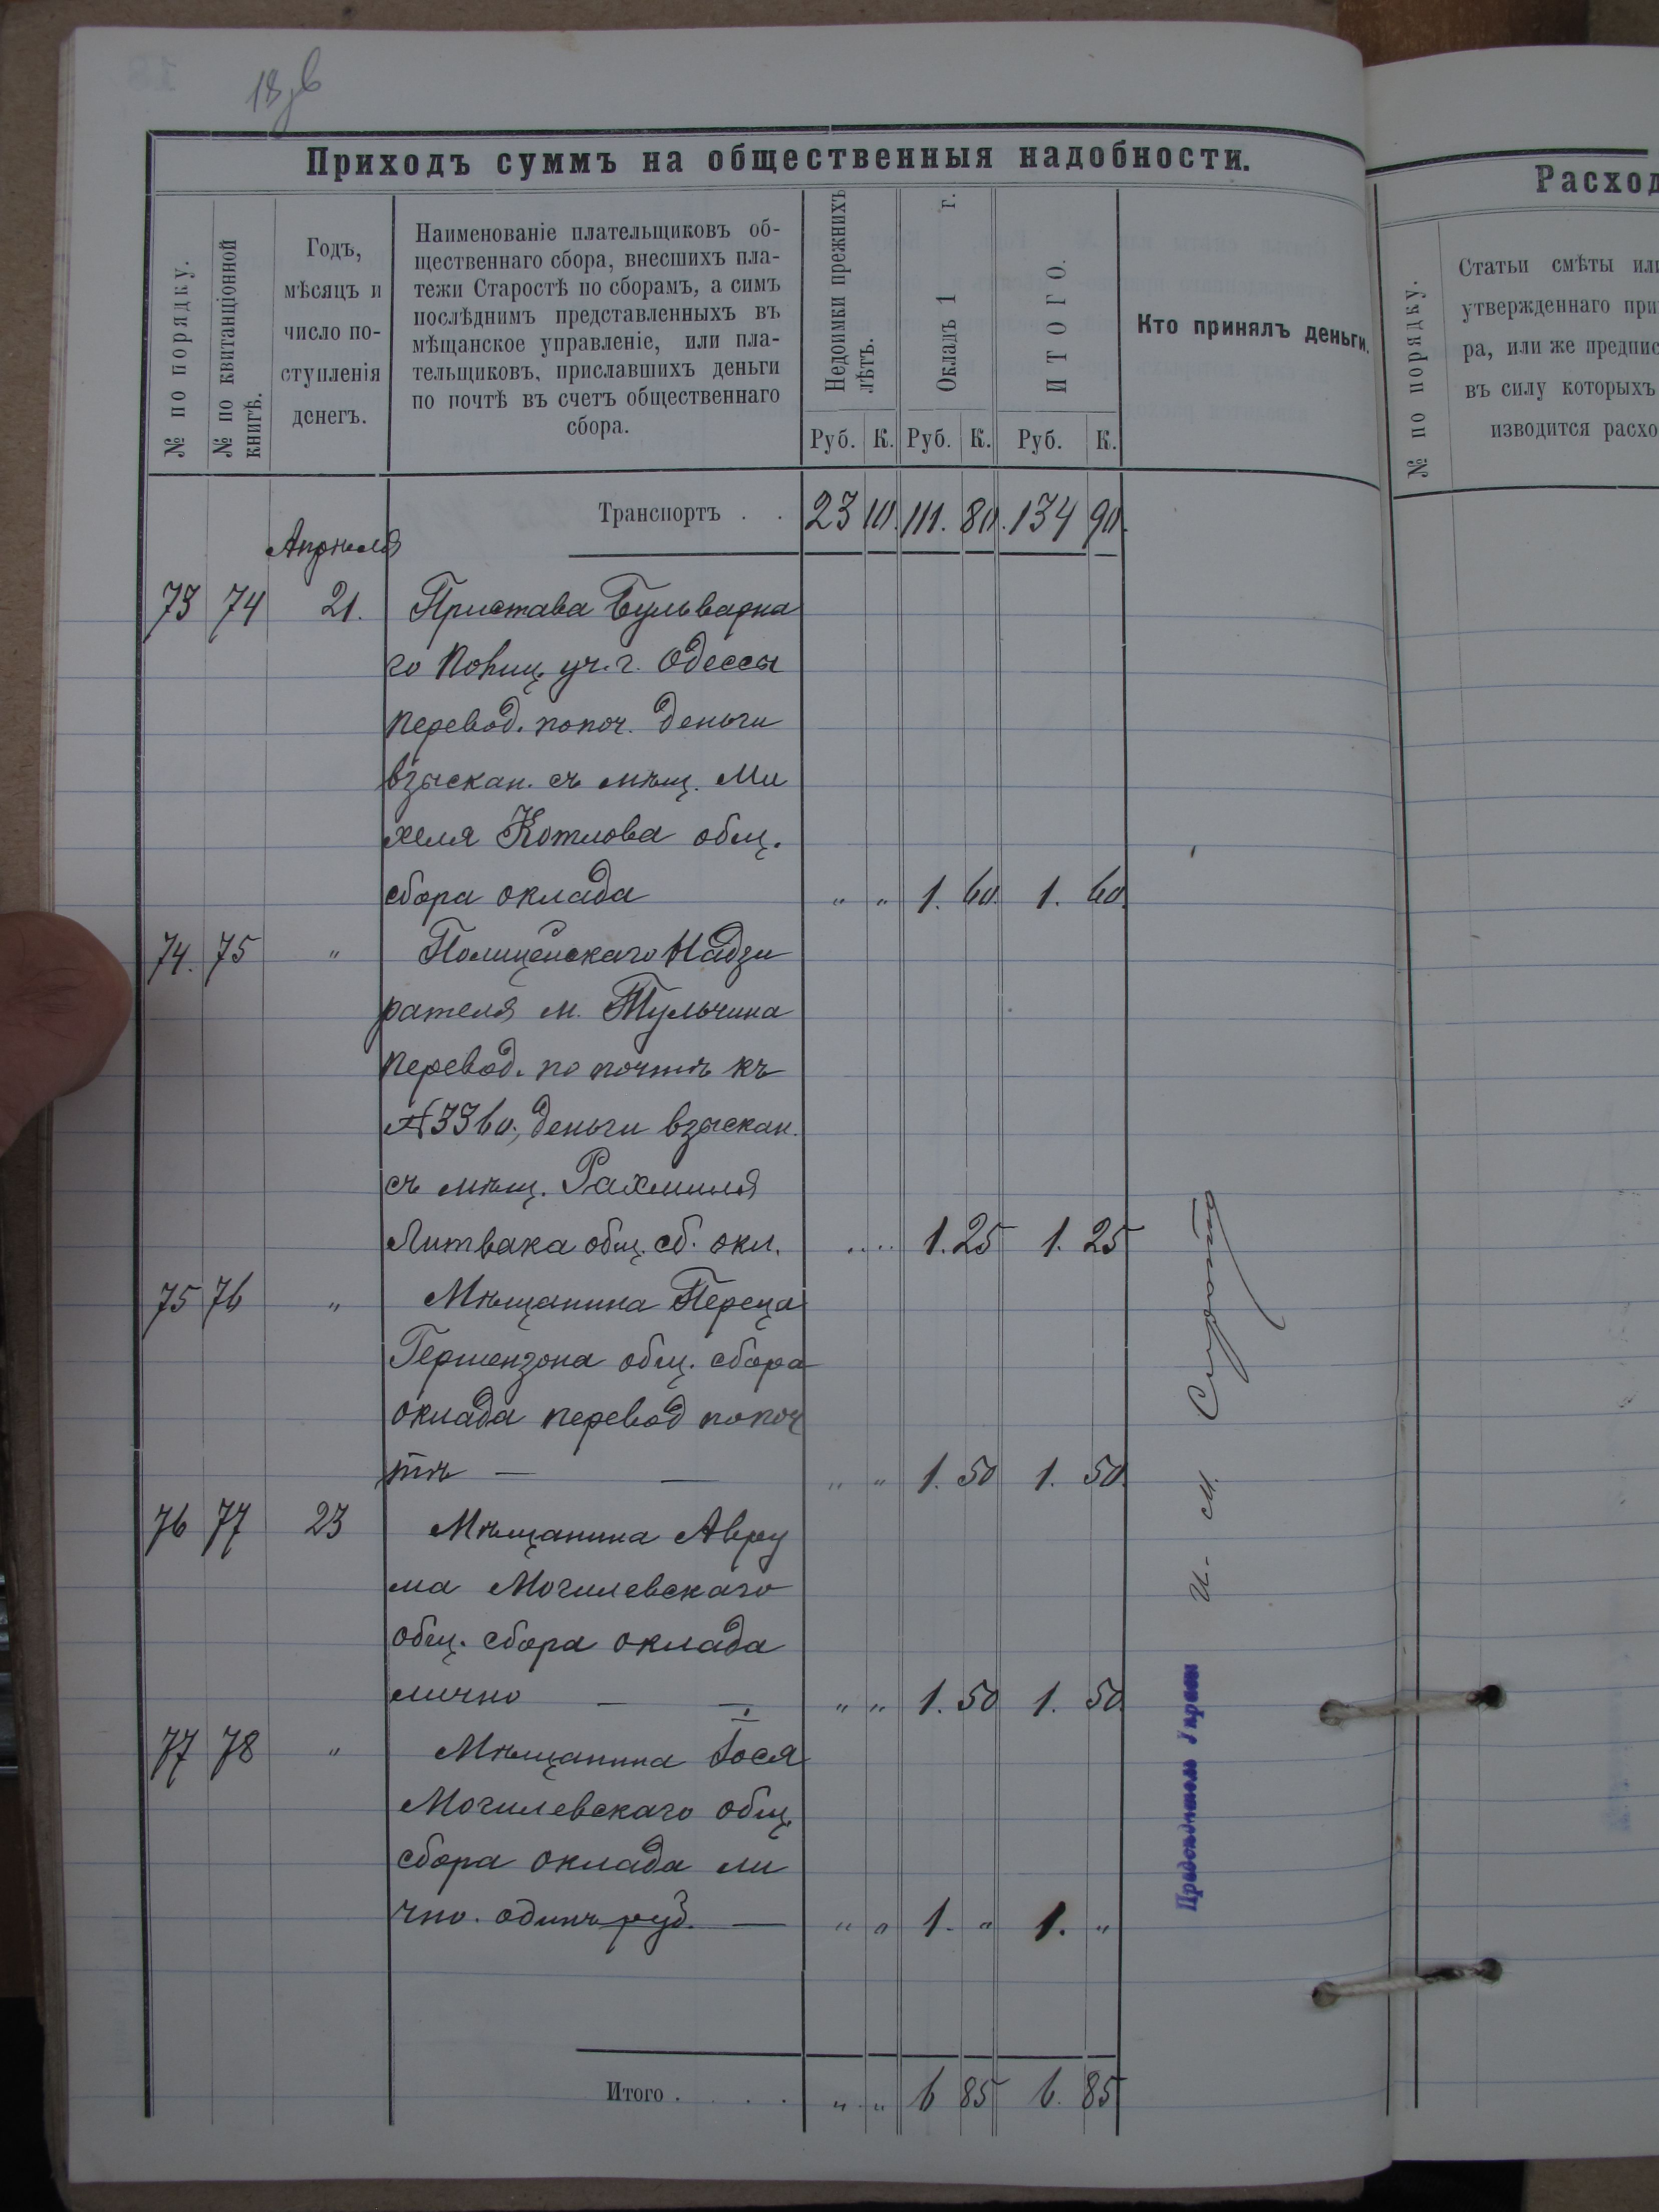 Приходъ суммъ на общественныя надобности.
№ по порядку.
№ по квитанціонной
книгѣ.
Годъ,
мѣсяцъ и
число по-
ступленія
денегъ.
Наименованіе плательщиковъ об-
щественнаго сбора, внесшихъ пла-
тежи Старостѣ по сборамъ, а симъ
послѣднимъ представленныхъ въ
мѣщанское управленіе, или пла-
тельщиковъ, приславшихъ деньги
по почтѣ въ счетъ общественнаго
сбора.
Недоимки прежнихъ
лѣтъ.
Окладъ 1 г.
ИТОГО.
Кто принялъ деньги.
Руб. К. Руб. К. Руб. К.
Транспортъ . . 23 10. 111. 80. 134 90.
Апрѣля
73 74 21. Пристава Бульварна
го Полиц. уч. г. Одессы
перевод. по поч. деньги
взыскан. съ мѣщ. Ми
хеля Котлова общ.
сбора оклада " " 1. 60. 1. 60.
74. 75 " Полицейскаго Надзи
рателя м. Тульчина
перевод. по почтѣ къ
№ 3360, деньги взыскан.
съ мѣщ. Рахмиля
Литвака общ. сб. окл. " " 1. 25 1. 25
75 76 " Мѣщанина Переца
Гершензона общ. сбора
оклада перевод по поч
тѣ — — " " 1. 50 1. 50.
76 77 23 Мѣщанина Авру
ма Могилевскаго
общ. сбора оклада
лично — — " " 1. 50 1. 50.
77 78 " Мѣщанина Іося
Могилевскаго общ.
сбора оклада ли
чно. одинъ руб. — " " 1. " 1. "
Итого . . . . " " 6 85 6. 85
Предсѣдатель Управы И. М. Сирота
Расход
№ по порядку.
Статьи смѣты или
утвержденнаго при
ра, или же предпис
въ силу которыхъ
изводится расхо